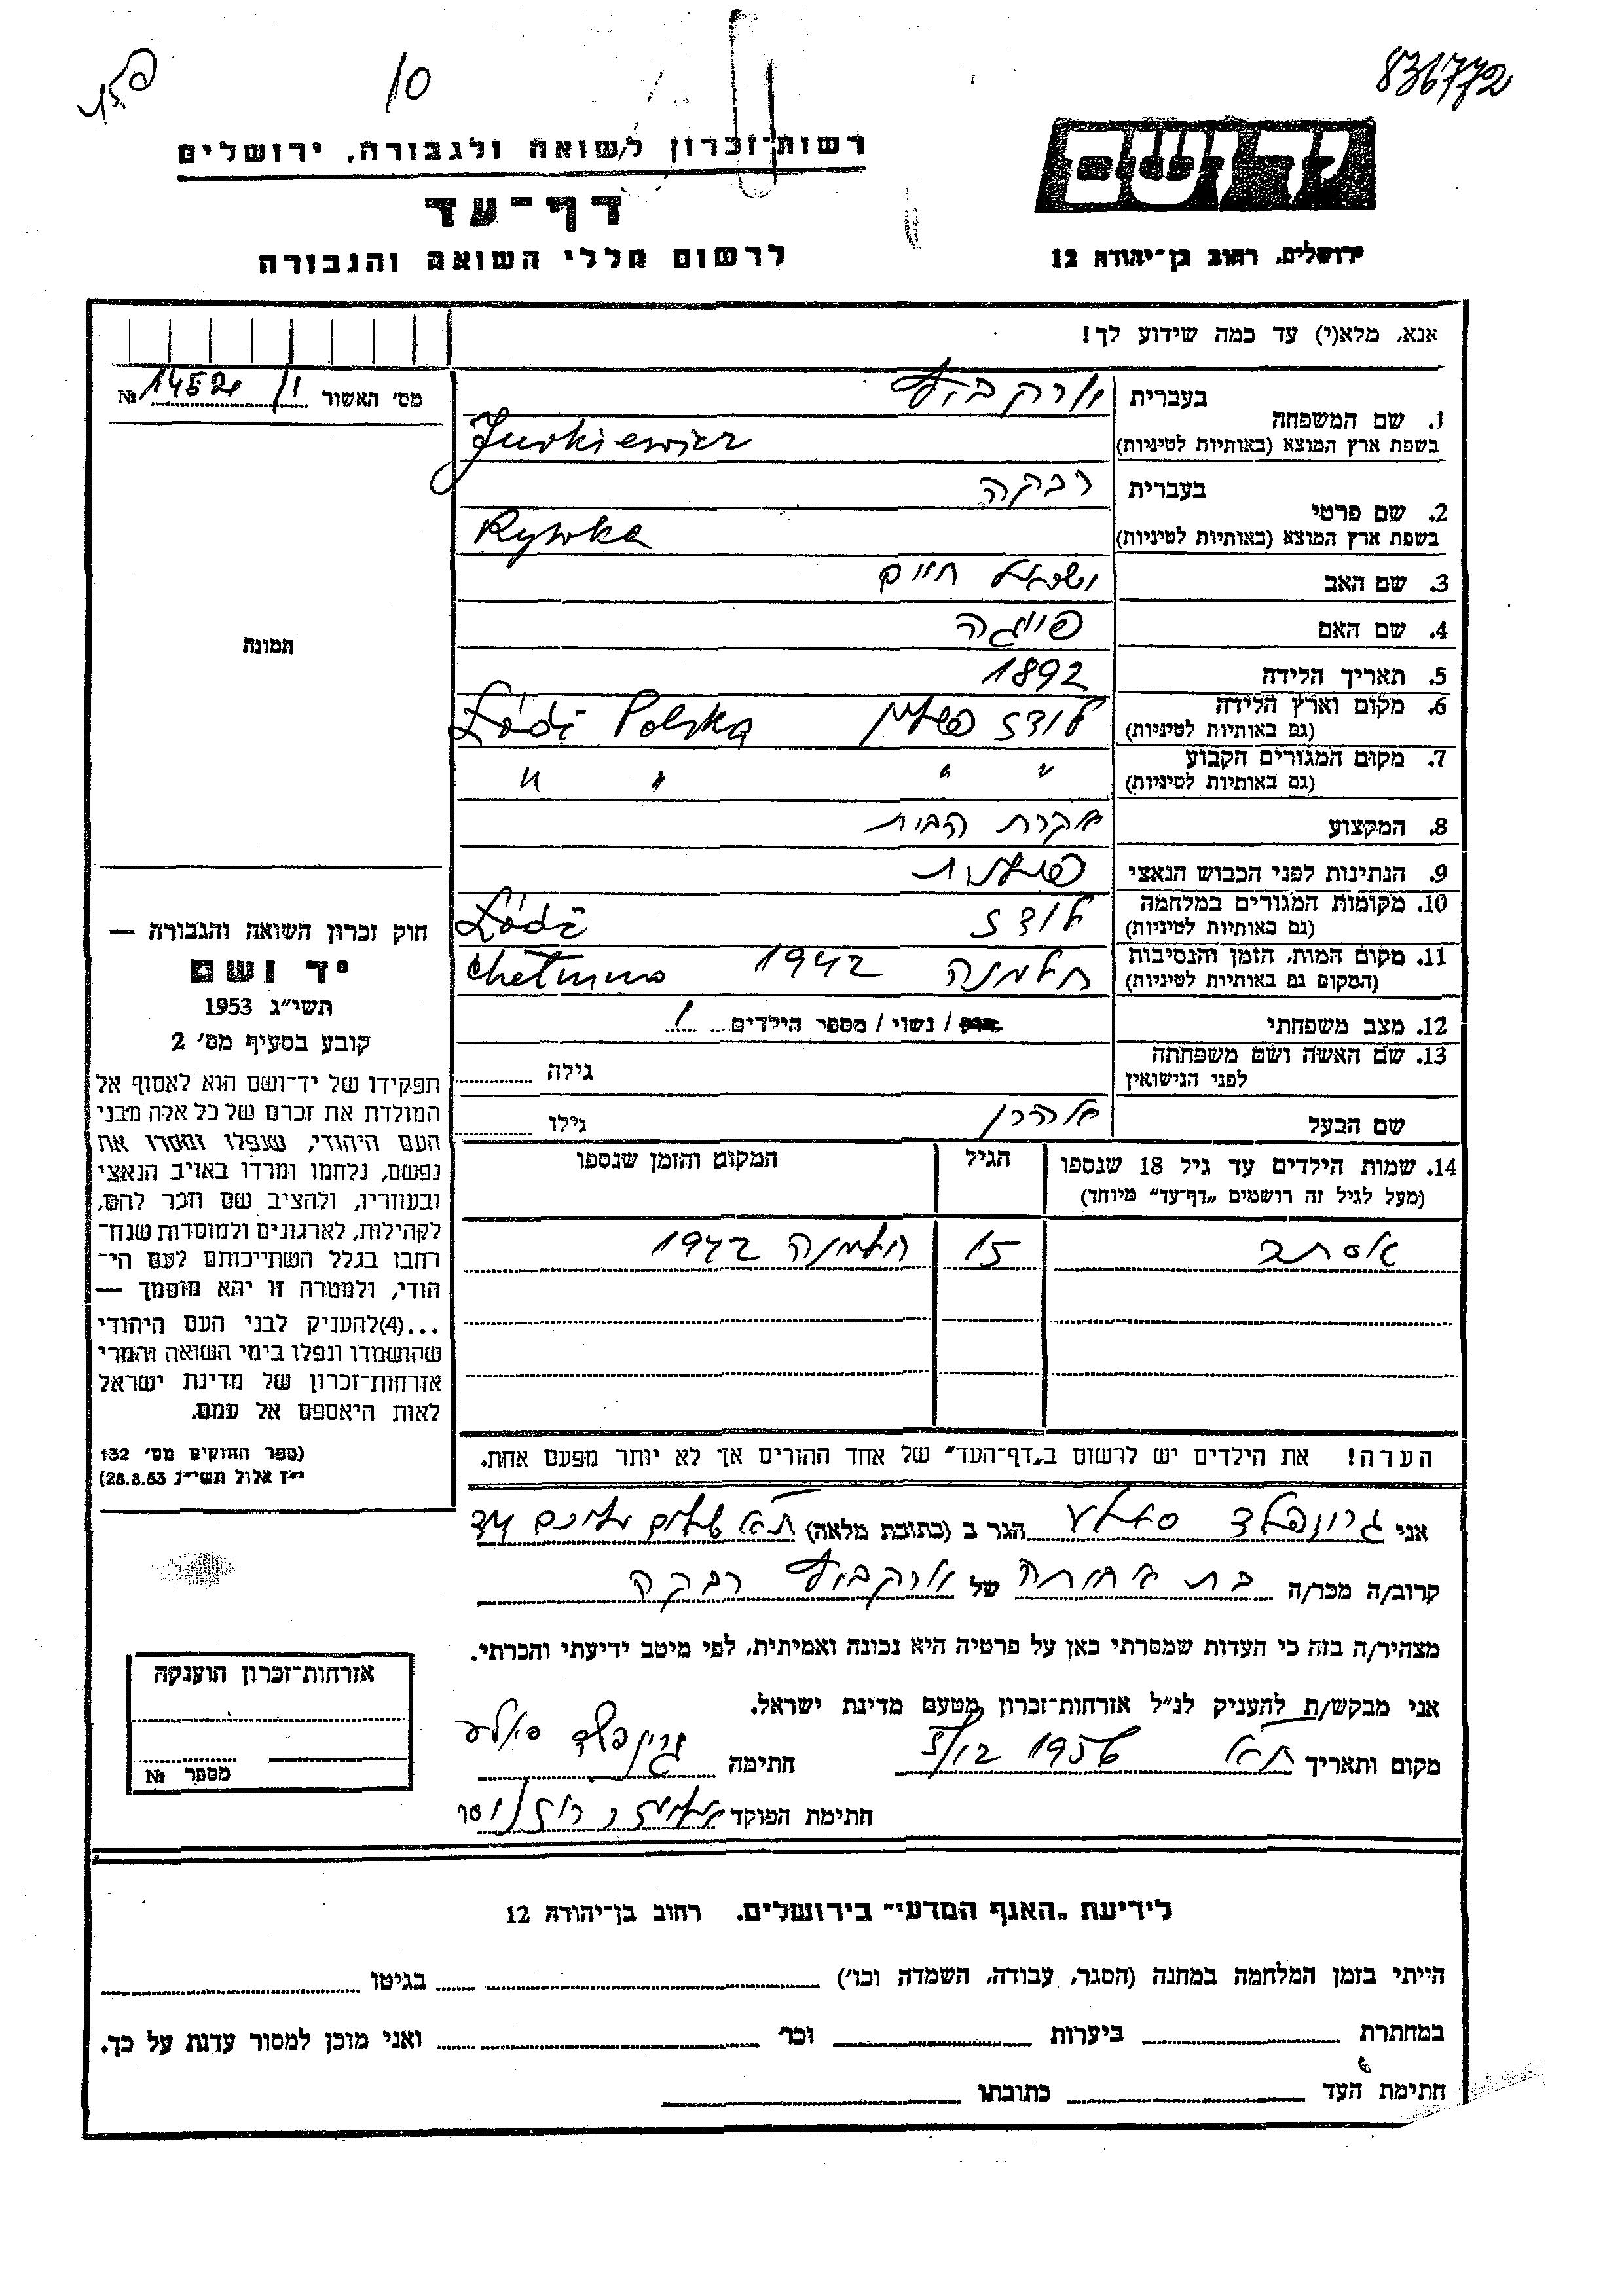 836772
10
יד ושם
ירושלים, רחוב בן־יהודה 12
רשות־זכרון לשואה ולגבורה, ירושלים
דף־עד
לרשום חללי השואה והגבורה
אנא, מלא(י) עד כמה שידוע לך!
מס׳ האשור 1/14521 №
תמונה
1. שם המשפחה
בעברית יורקביץ
בשפת ארץ המוצא (באותיות לטיניות) Jurkiewicz
2. שם פרטי
בעברית רבקה
בשפת ארץ המוצא (באותיות לטיניות) Rywka
3. שם האב ישראל חיים
4. שם האם פייגה
5. תאריך הלידה 1892
6. מקום וארץ הלידה לודז פולין Łódź Polska
(גם באותיות לטיניות)
7. מקום המגורים הקבוע " " " "
(גם באותיות לטיניות)
8. המקצוע עקרת הבית
9. הנתינות לפני הכבוש הנאצי פולנית
10. מקומות המגורים במלחמה לודז Łódź
(גם באותיות לטיניות)
11. מקום המות, הזמן והנסיבות חלמנה 1942 Chełmno
(המקום גם באותיות לטיניות)
12. מצב משפחתי רווק / נשוי / מספר הילדים 1
13. שם האשה ושם משפחתה גילה
לפני הנישואין
שם הבעל אהרן גילו
14. שמות הילדים עד גיל 18 שנספו הגיל המקום והזמן שנספו
(מעל לגיל זה רושמים „דף־עד״ מיוחד)
אסתר 15 חלמנה 1942
הערה! את הילדים יש לרשום ב„דף־העד״ של אחד ההורים אך לא יותר מפעם אחת.
חוק זכרון השואה והגבורה —
יד ושם
תשי״ג 1953
קובע בסעיף מס׳ 2
תפקידו של יד־ושם הוא לאסוף אל
המולדת את זכרם של כל אלה מבני
העם היהודי, שנפלו ומסרו את
נפשם, נלחמו ומרדו באויב הנאצי
ובעוזריו, ולהציב שם וזכר להם,
לקהילות, לארגונים ולמוסדות שנח־
רבו בגלל השתייכותם לעם הי־
הודי, ולמטרה זו יהא מוסמך —
...(4)להעניק לבני העם היהודי
שהושמדו ונפלו בימי השואה והמרי
אזרחות־זכרון של מדינת ישראל
לאות היאספם אל עמם.
(ספר החוקים מס׳ 132
י״ז אלול תשי״ג 28.8.53)
אני גרונפלד הגר ב (כתובת מלאה) ת״א
קרוב/ה מכר/ה בת אחותה של יורקביץ רבקה
מצהיר/ה בזה כי העדות שמסרתי כאן על פרטיה היא נכונה ואמיתית, לפי מיטב ידיעתי והכרתי.
אני מבקש/ת להעניק לנ״ל אזרחות־זכרון מטעם מדינת ישראל.
מקום ותאריך ת״א חתימה גרינפלד
חתימת הפוקד
אזרחות־זכרון הוענקה
מספר №
לידיעת „האגף המדעי״ בירושלים. רחוב בן־יהודה 12
הייתי בזמן המלחמה במחנה (הסגר, עבודה, השמדה וכו׳) בגיטו
במחתרת ביערות וכו׳ ואני מוכן למסור עדות על כך.
חתימת העד כתובתו